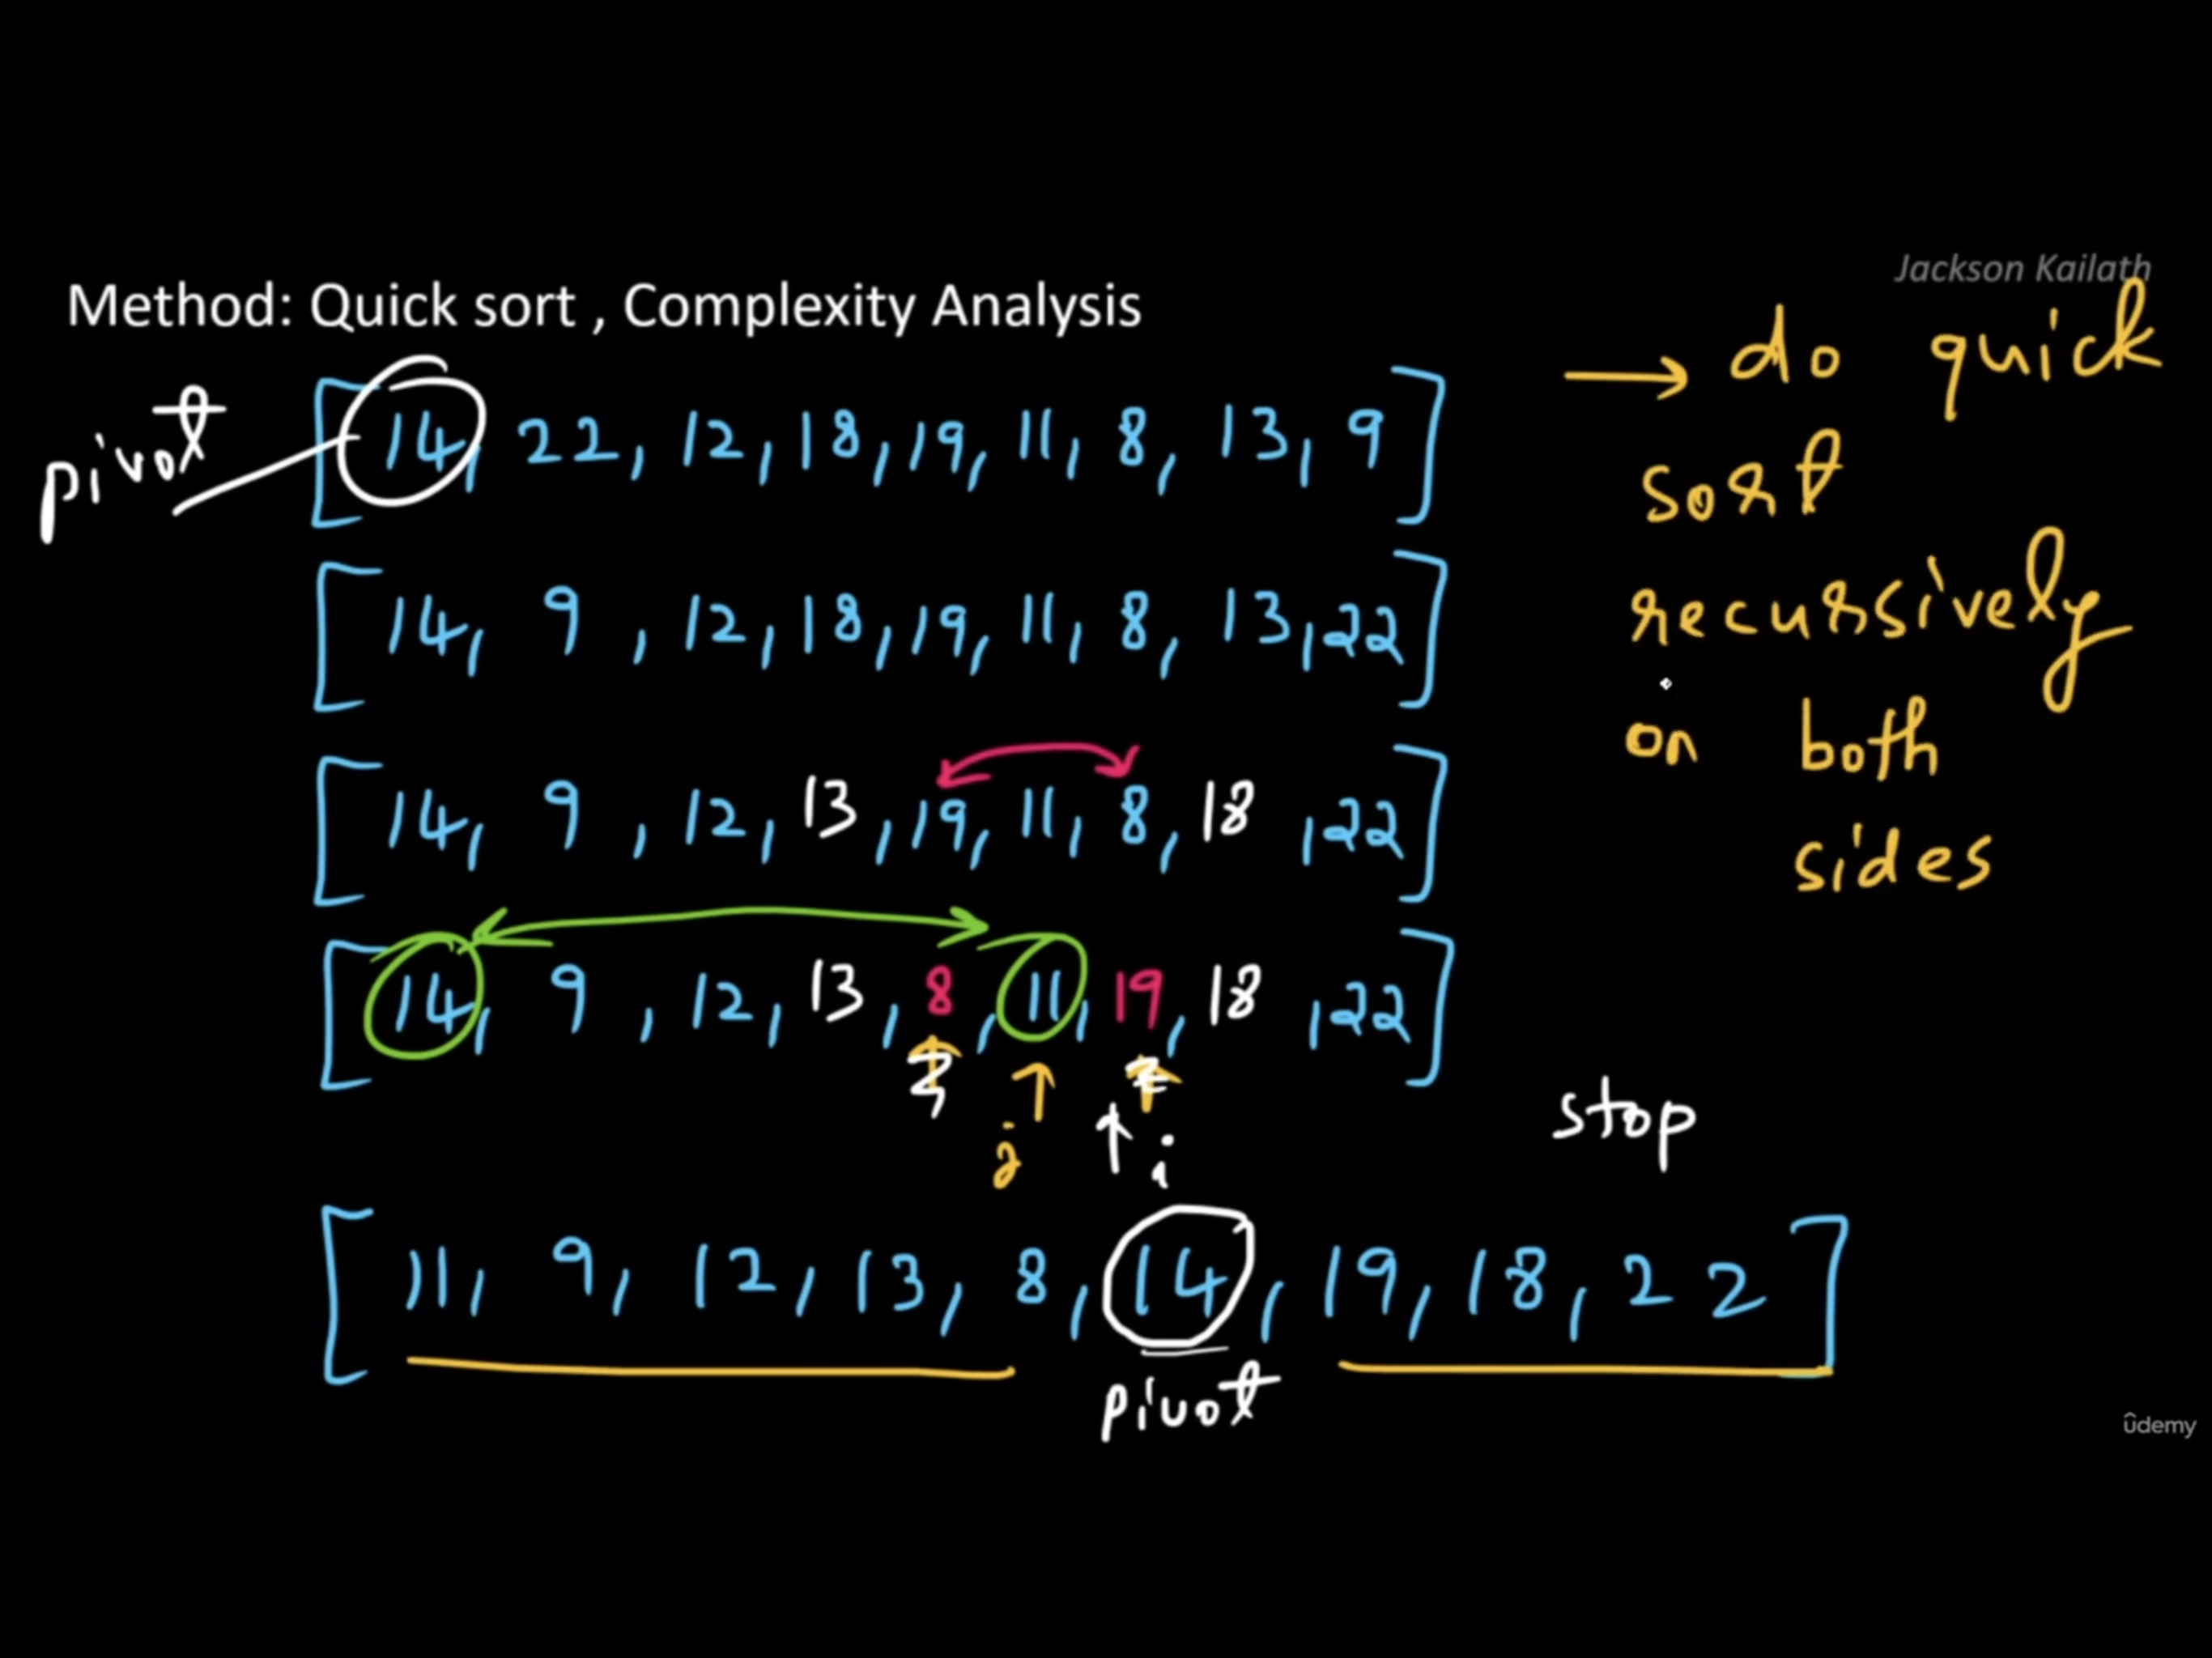 Jackson Kailath
Method: Quick sort , Complexity Analysis
pivot
[14, 22, 12, 18, 19, 11, 8, 13, 9]
[14, 9, 12, 18, 19, 11, 8, 13, 22]
[14, 9, 12, 13, 19, 11, 8, 18, 22]
[14, 9, 12, 13, 8, 11, 19, 18, 22]
j i
stop
[11, 9, 12, 13, 8, 14, 19, 18, 22]
pivot
→ do quick
sort
recursively
on both
sides
ûdemy